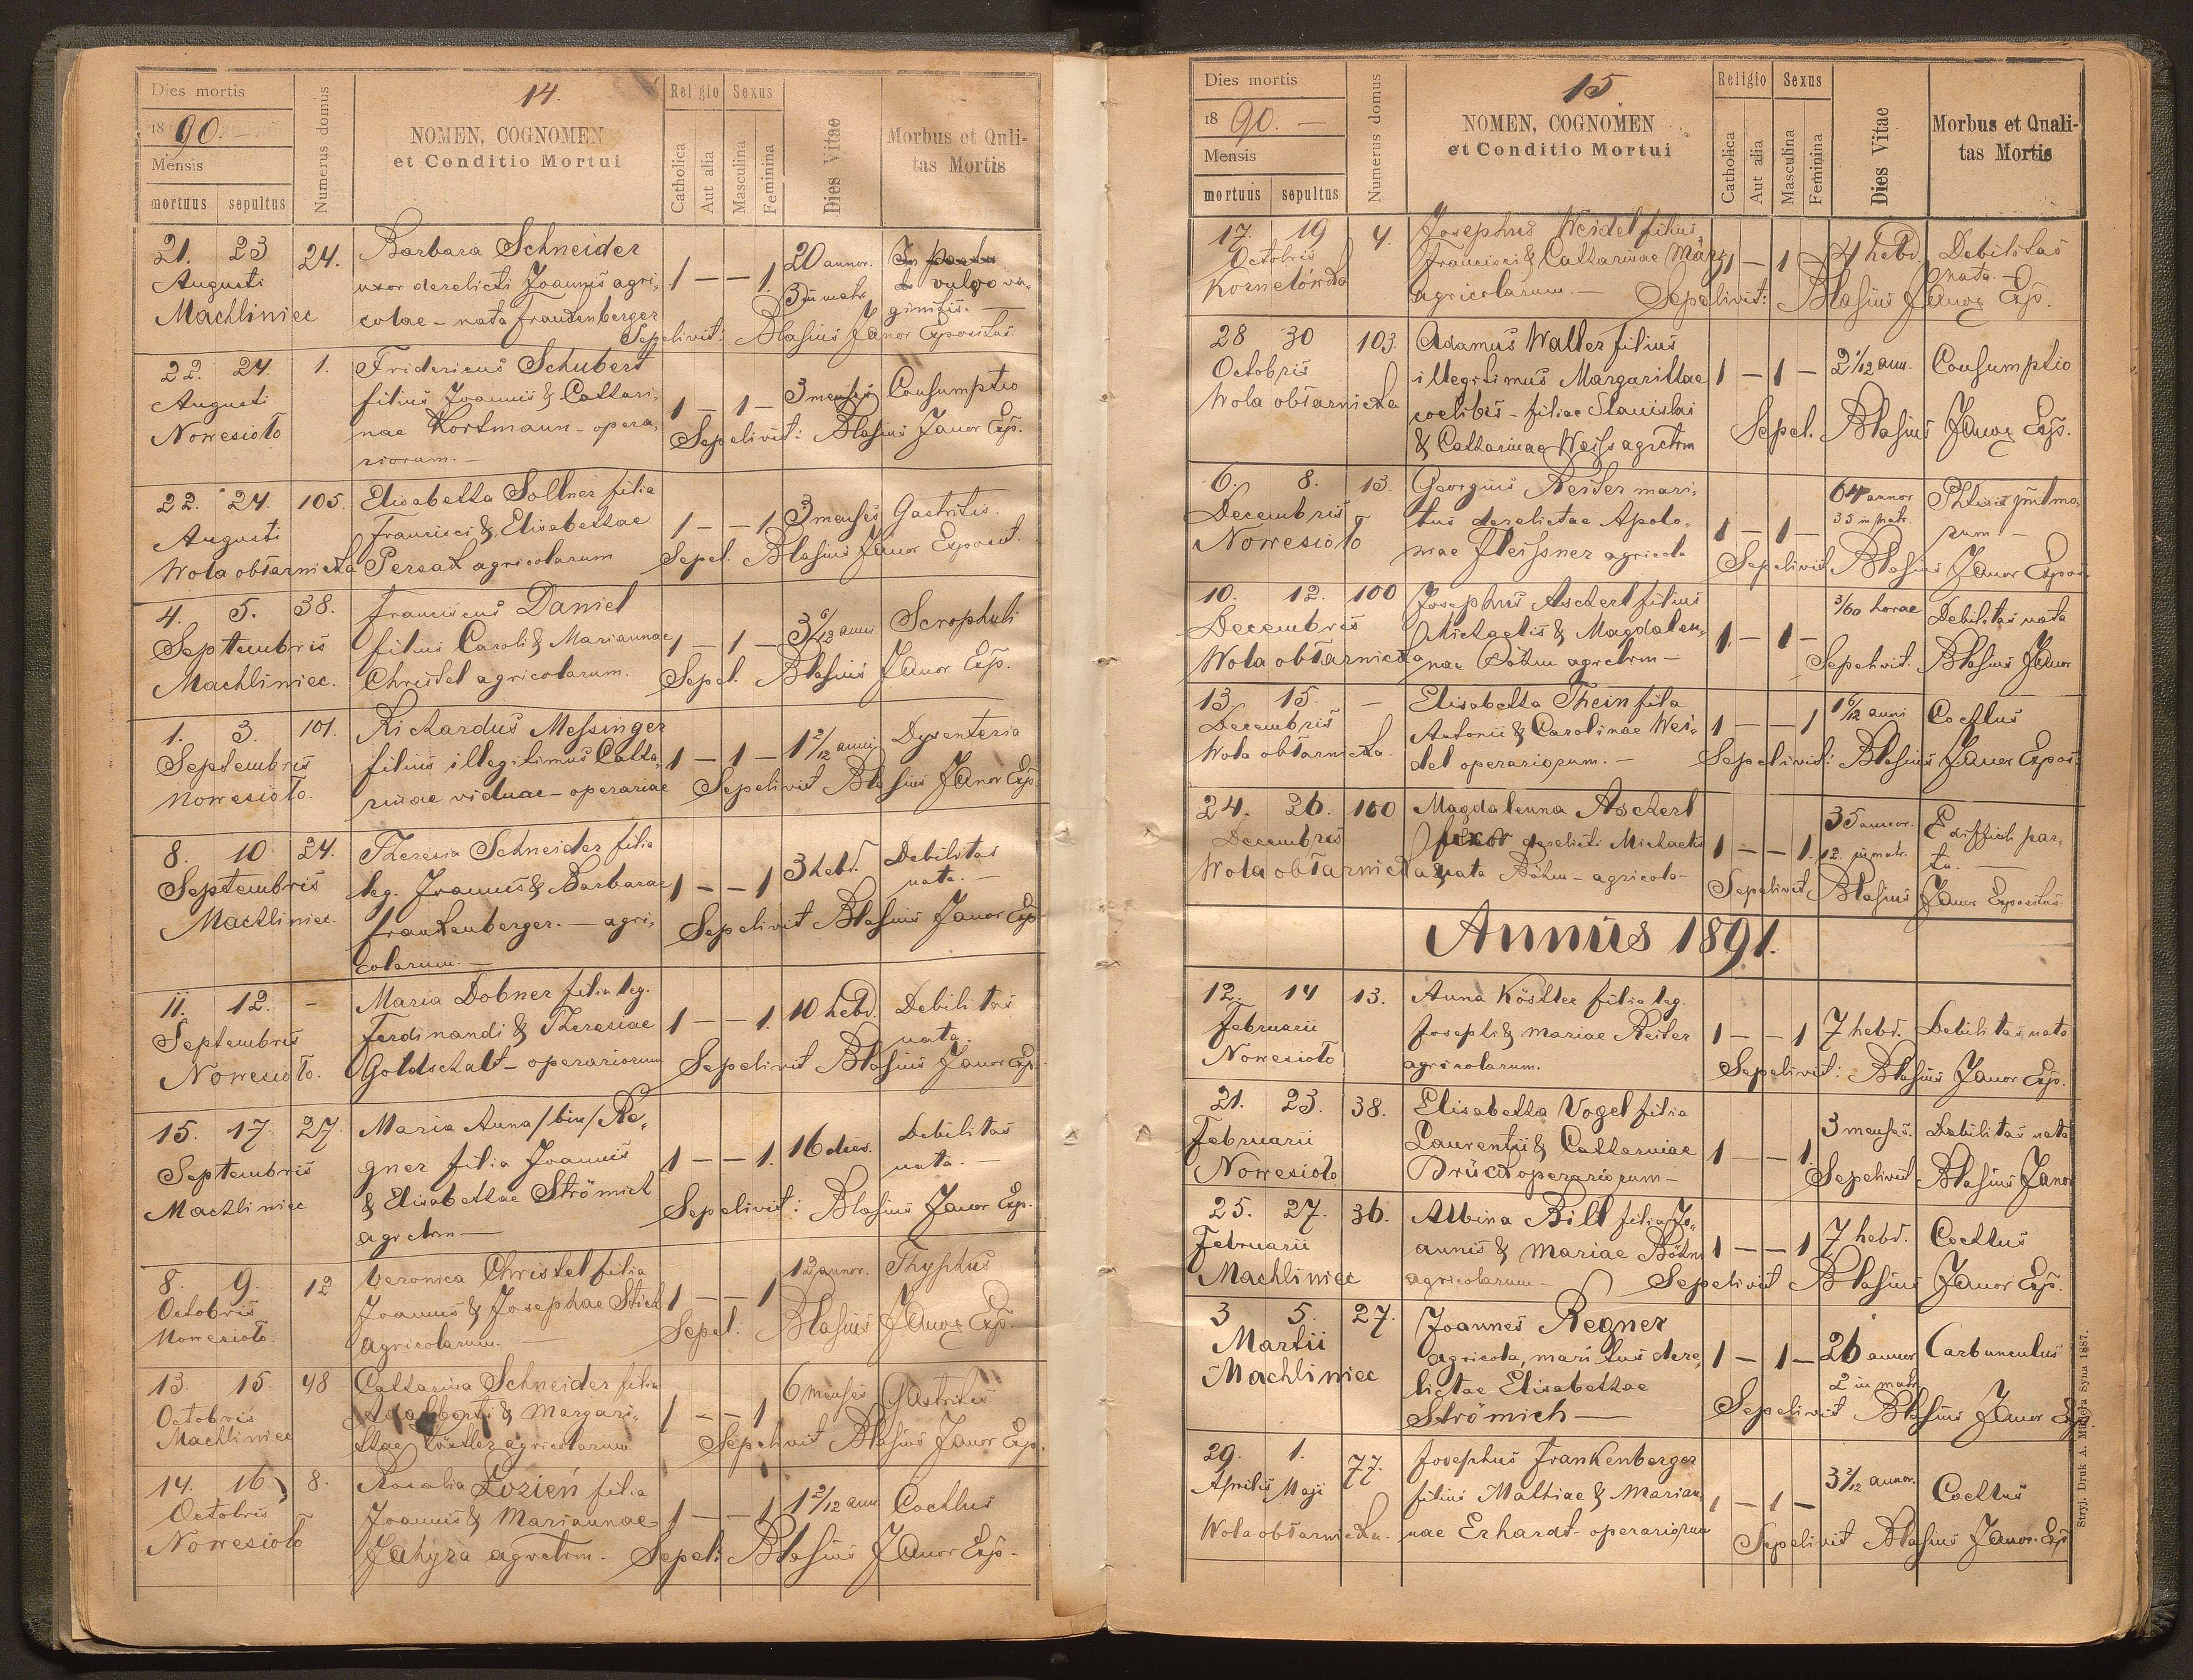 14.
Dies mortis
1890. —
Mensis
mortuus sepultus
Numerus domus
NOMEN, COGNOMEN
et Conditio Mortui
Religio
Catholica
Aut alia
Sexus
Masculina
Feminina
Dies Vitae
Morbus et Quli-
tas Mortis
21. 23 24. Barbara Schneider 20 annor.
Augusti uxor derelicti Joannis agri- 1 — — 1. 3 in matr. vulgo va-
Machliniec colae – nata Frankenberger ginitis. —
Sepelivit: Blasius Janor Expositus.
22. 24. 1. Fridericus Schubert
Augusti filius Joannis & Cathari- 1 — 1 — 3 menses Consumptio
Nowesioło nae Kortmann – opera- Sepelivit: Blasius Janor Exp.
riorum. —
22. 24. 105. Elisabetha Sollner filia
Augusti Francisci & Elisabethae 1 — — 1 3 menses Gastritis.
Wola obłarnicka Persak agricolarum Sepel. Blasius Janor Exposit.
4. 5. 38. Franciscus Daniel
Septembris filius Caroli & Mariannae 1 — 1 — 3 6/12 anni. Scrophuli
Machliniec. Christel agricolarum. Sepel. Blasius Janor Exp.
1. 3. 101. Richardus Messinger
Septembris filius illegitimus Catha- 1 — 1 — 1 2/12 anni Dysenteria
Nowesioło. rinae viduae – operariae Sepelivit Blasius Janor Exp.
8. 10 24. Theresia Schneider filia
Septembris leg. Joannis & Barbarae 1 — — 1 3 hebd. Debilitas nata. —
Machliniec. Frankenberger. — agri- Sepelivit Blasius Janor Exp.
colarum. —
11. 12. – Maria Dobner filia leg.
Septembris Ferdinandi & Theresiae 1 — — 1. 10 hebd. Debilitas nata.
Nowesioło. Goldschalt – operariorum Sepelivit Blasius Janor Exp.
15. 17. 27. Maria Anna /bin/ Re-
Septembris gner filia Joannis 1 — — 1. 16 dies. Debilitas nata.
Machliniec & Elisabethae Strömich Sepelivit: Blasius Janor Exp.
agrclrm —
8. 9. 12 Veronica Christel filia 12 annor. Thyphus
Octobris Joannis & Josephae Stich 1 — — 1
Nowesioło. agricolarum. — Sepel. Blasius Janor Exp.
13. 15. 48 Catharina Schneider filia 6 menses Gastritis
Octobris Adalberti & Margari- 1 — — 1
Machliniec thae Köstler agricolarum Sepelivit Blasius Janor Exp.
14. 16. 8. Rosalia Łozień filia 1 2/12 ann. Cochlus
Octobris Joannis & Mariannae 1 — — 1
Nowesioło Jahyra agrclrm. Sepeli. Blasius Janor Exp.
15
Dies mortis
1890. —
Mensis
mortuus sepultus
Numerus domus
NOMEN, COGNOMEN
et Conditio Mortui
Religio
Catholica
Aut alia
Sexus
Masculina
Feminina
Dies Vitae
Morbus et Quali-
tas Mortis
17. 19 4. Josephus Weidel filius
Octobris Francisci & Catharinae März 1 — 1 4 hebd. Debilitas nata. —
Kornelówka agricolarum. — Sepelivit: Blasius Janor Exp.
28 30 103. Adamus Walter filius
Octobris illegitimus Margarithae 1 — 1 — 2 1/12 ann. Consumptio
Wola obłarnicka coelibis – filiae Stanislai Sepel. Blasius Janor Exp.
& Catharinae Weiss agrclrm
6. 8. 13. Georgius Reiter mari- 64 annor Phtisis pulmo-
Decembris tus derelictae Apolo- 1 — 1 — 35 in matr. num —
Nowesioło niae Fleissner agricola Sepelivit Blasius Janor Expos.
10. 12. 100 Josephus Aschert filius 3/60 horae Debilitas nata
Decembris Michaelis & Magdalen- 1. — 1 —
Wola obłarnicka nae Böhm agrclrm — Sepelivit. Blasius Janor
13. 15. — Elisabetha Thein filia 1 6/12 anni Cochlus
Decembris Antonii & Carolinae Wei- 1 — — 1
Wola obłarnicka. del operariorum. — Sepelivit: Blasius Janor Expos.
24. 26. 100 Magdalenna Aschert 35 annor. E difficili par-
Decembris uxor derelicti Michaelis 1 — — 1. 12. in matr. tu. —
Wola obłarnicka nata Böhm – agricola – Sepelivit Blasius Janor Expositus
Annus 1891.
12. 14 13. Anna Köstler filia leg.
Februarii Josephi & Mariae Reiter 1 — — 1 7 hebd. Debilitas nata
Nowesioło agricolarum. Sepelivit: Blasius Janor Exp.
21. 23. 38. Elisabetha Vogel filia
Februarii Laurentii & Catharinae 1 — — 1 3 menses. Debilitas nata
Nowesioło operariorum — Sepelivit Blasius Janor
25. 27. 36. Albina Bill filia Jo-
Februarii annis & Mariae Böhm 1 — — 1 7 hebd. Cochlus
Machliniec agricolarum — Sepelivit Blasius Janor Exp.
3 5. 27. Joannes Regner
Martii agricola, maritus dere- 1 — 1 — 26 annor Carbunculus
Machliniec lictae Elisabethae 2 in matr.
Strömich — Sepelivit Blasius Janor Exp.
29. 1. 77. Josephus Frankenberger
Aprilis Maji filius Mathiae & Marian- 1 — 1 — 3 3/12 annor. Cochlus
Wola obłarnicka. nae Erhardt – operariorum Sepelivit Blasius Janor. Exp
Stryj. Druk A. Müllera Syna 1887.